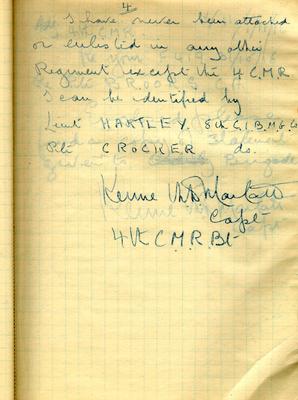 4
I have never been attached
or enlisted in any other
Regiment except the 4 C.M.R.
I can be identified by
Lieut HARTLEY. 8th C.I.B.M.G.C
Pte CROCKER do.
Capt
4th C.M.R. Bt